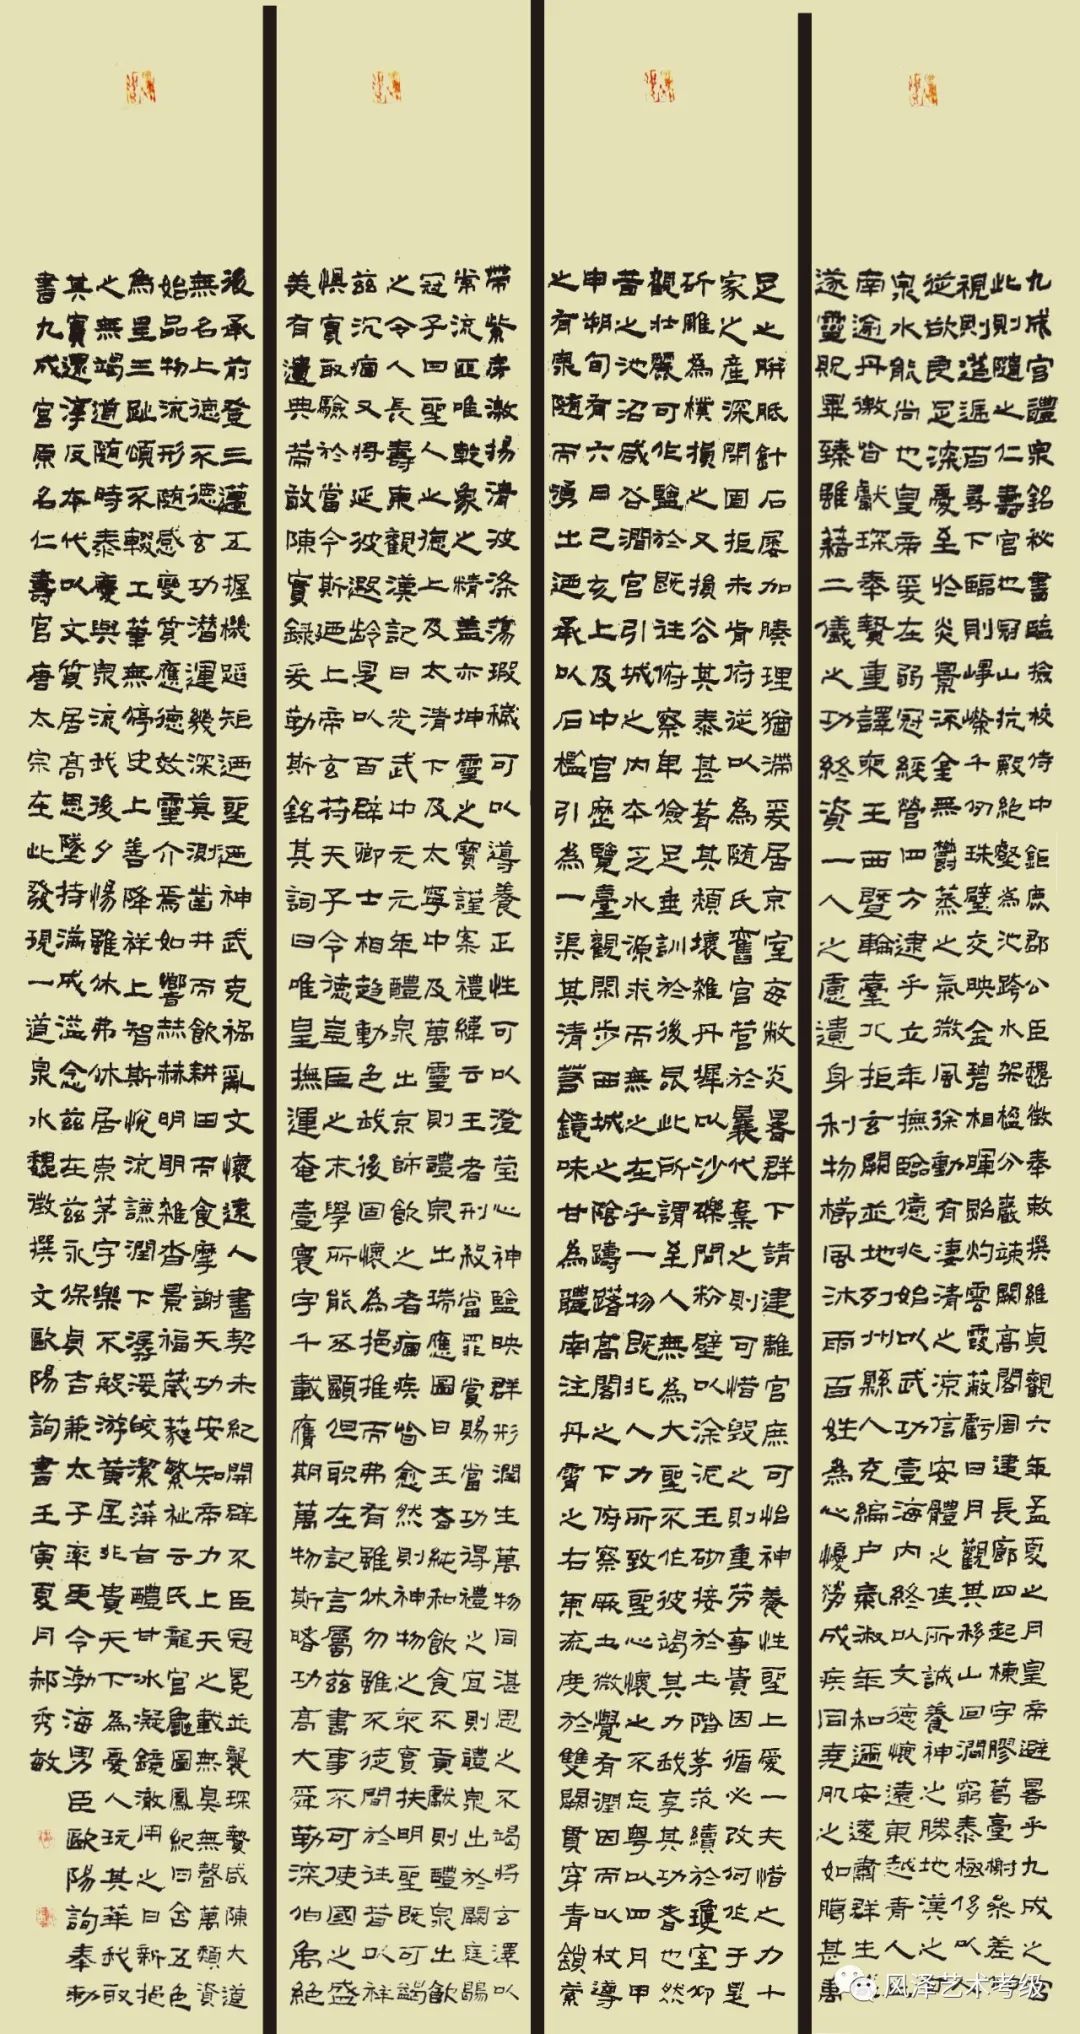 九成宮醴泉銘秘書臨撿校侍中鉅鹿郡公臣魏徵奉敕撰維貞觀六年孟夏之月皇帝避暑乎九成之宮
此則隨之仁壽宮也冠山抗殿絕壑為池跨水架楹分巖竦闕高閣周建長廊四起棟宇膠葛臺榭參差仰
視則迢遞百尋下臨則崢嶸千仞珠璧交映金碧相暉照灼雲霞蔽虧日月觀其移山回澗窮泰極侈以人
從欲良足深憂至於炎景流金無欝蒸之氣微風徐動有淒清之涼信安體之佳所誠養神之勝地漢之甘
泉水能尚也皇帝爰在弱冠經營四方逮乎立年撫臨億兆始以武功壹海內終以文德懷遠東越青人
南逾丹徼皆獻琛奉贄重譯來王西暨輪臺北拒玄闕並地列州縣人充編户氣淑年和邇安遂肅群生咸
遂靈貺畢臻雖藉二儀之功終資一人之慮遺身利物櫛風沐雨百姓為心憂勞成疾同堯肌之如腊甚禹
足之胼胝針石屡加腠理猶滯爰居京室每敝炎暑群下請建離宮庶可怡神養性聖上愛一夫惜之力十
家之產深閉固拒未肯俯從以為随氏舊宮營於曩代棄之則可惜毀之則重勞事貴因循必改何作于是
斫雕為樸損之又損公其泰甚葺其頹壞雜丹墀以沙礫間粉壁以涂泥玉砌接於土階茅茨續於瓊室仰
觀壯麗可作鑒於既往俯察卑儉足垂訓於後昆此所謂至人無為大聖不作彼竭其力我享其功者也然
昔之池沼咸谷澗宮引城之内本乏水源求而無之在乎一物既北人力所致聖心懷之不忘粵以四月甲
申朔旬有六日己亥上及中宮歷覽臺觀閑步西城之陰躊躇高閣之下俯察厥土微覺有潤因而以杖導
之有泉随而湧出迺承以石檻引為一渠其清若鏡味甘為醴南注丹霄之右東流度於雙闕貫穿青鎖縈
帶紫房激揚清波滌蕩瑕穢可以導養正性可以澄瑩心神鑒映群形潤生萬物同湛恩之不竭將玄澤以
常流匪唯乾象之精蓋亦坤靈之寶謹案禮緯云王者刑殺當罪賞賜當功得禮之宜則醴泉出於闕庭鶡
冠子曰聖人之德上及太清下及太寧中及萬靈則醴泉出瑞應圖曰王者純和飲食不貢獻則醴泉出飲
之令人長壽東觀漢記曰光武中元元年醴泉出京師飲之者痼疾皆愈然則神物之來實扶明聖既可蠲
茲沉痼又将延彼遐齡是以百辟卿士相趨動色我後固懷為挹推而弗有雖休勿雖不徒間於往昔以祥
惧實取驗於當今斯廼上帝玄符天子令德豈臣之末學所能丕顯但职在記言屬茲書事不可使國之盛
美有遺典策敢陳實録爰勒斯銘其詞曰唯皇撫運奄壹寰宇千載膺期萬物斯睹功高大舜勤深伯禹絕
後承前登三邁五握機蹈矩迺聖迺神武克禍亂文懷遠人書契未紀開辟不臣冠冕並襲琛贄咸陳大道
無名上德不德玄功潜運幾深莫測凿井而飲耕田而食靡謝天功安知帝力上天之載無臭無聲萬類資
始品物流形随感變質應德效靈介焉如響赫赫明明雜沓景福葳蕤繁祉云氏龍官龜圖鳳紀日含五色
烏呈三趾頌不輟工筆無停史上善降祥上智斯悅流謙潤下潺湲皎潔萍旨醴甘冰凝鏡澈用之日新挹
之無竭道随時泰慶與泉流我後夕惕雖休弗休居崇茅宇樂不般游黃屋北貴天下為憂人玩其華我取
其實還淳反本代以文質居高思墜持滿成溢念茲在茲永保貞吉兼太子率更令渤海男臣歐陽詢奉勅
書九成宮原名仁壽宮唐太宗在此發現一道泉水魏徵撰文歐陽詢書壬寅夏月郝秀敏
风泽艺术考级